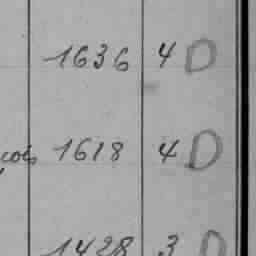 1636 4 D
cols 1618 4 D
1428 3 D